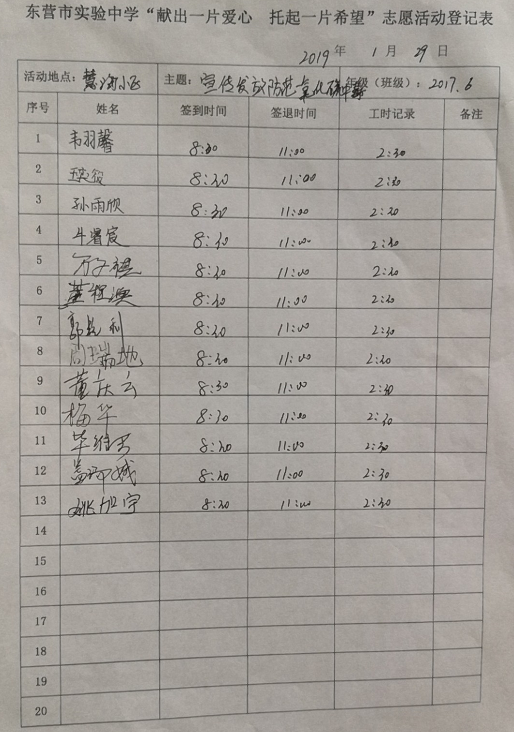 东营市实验中学“献出一片爱心 托起一片希望”志愿活动登记表
2019年 1月 29日
活动地点： 主题：宣传发放防范一氧化碳 年级（班级）：2017.6
序号 姓名 签到时间 签退时间 工时记录 备注
1 韦羽馨 8:30 11:00 2:30
2 8:30 11:00 2:30
3 孙雨欣 8:30 11:00 2:30
4 牛曙宸 8:30 11:00 2:30
5 万子祺 8:30 11:00 2:30
6 董程澳 8:30 11:00 2:30
7 8:30 11:00 2:30
8 周瑞 8:30 11:00 2:30
9 董庆云 8:30 11:00 2:30
10 梅华 8:30 11:00 2:30
11 8:30 11:00 2:30
12 8:30 11:00 2:30
13 姚旭宇 8:30 11:00 2:30
14
15
16
17
18
19
20